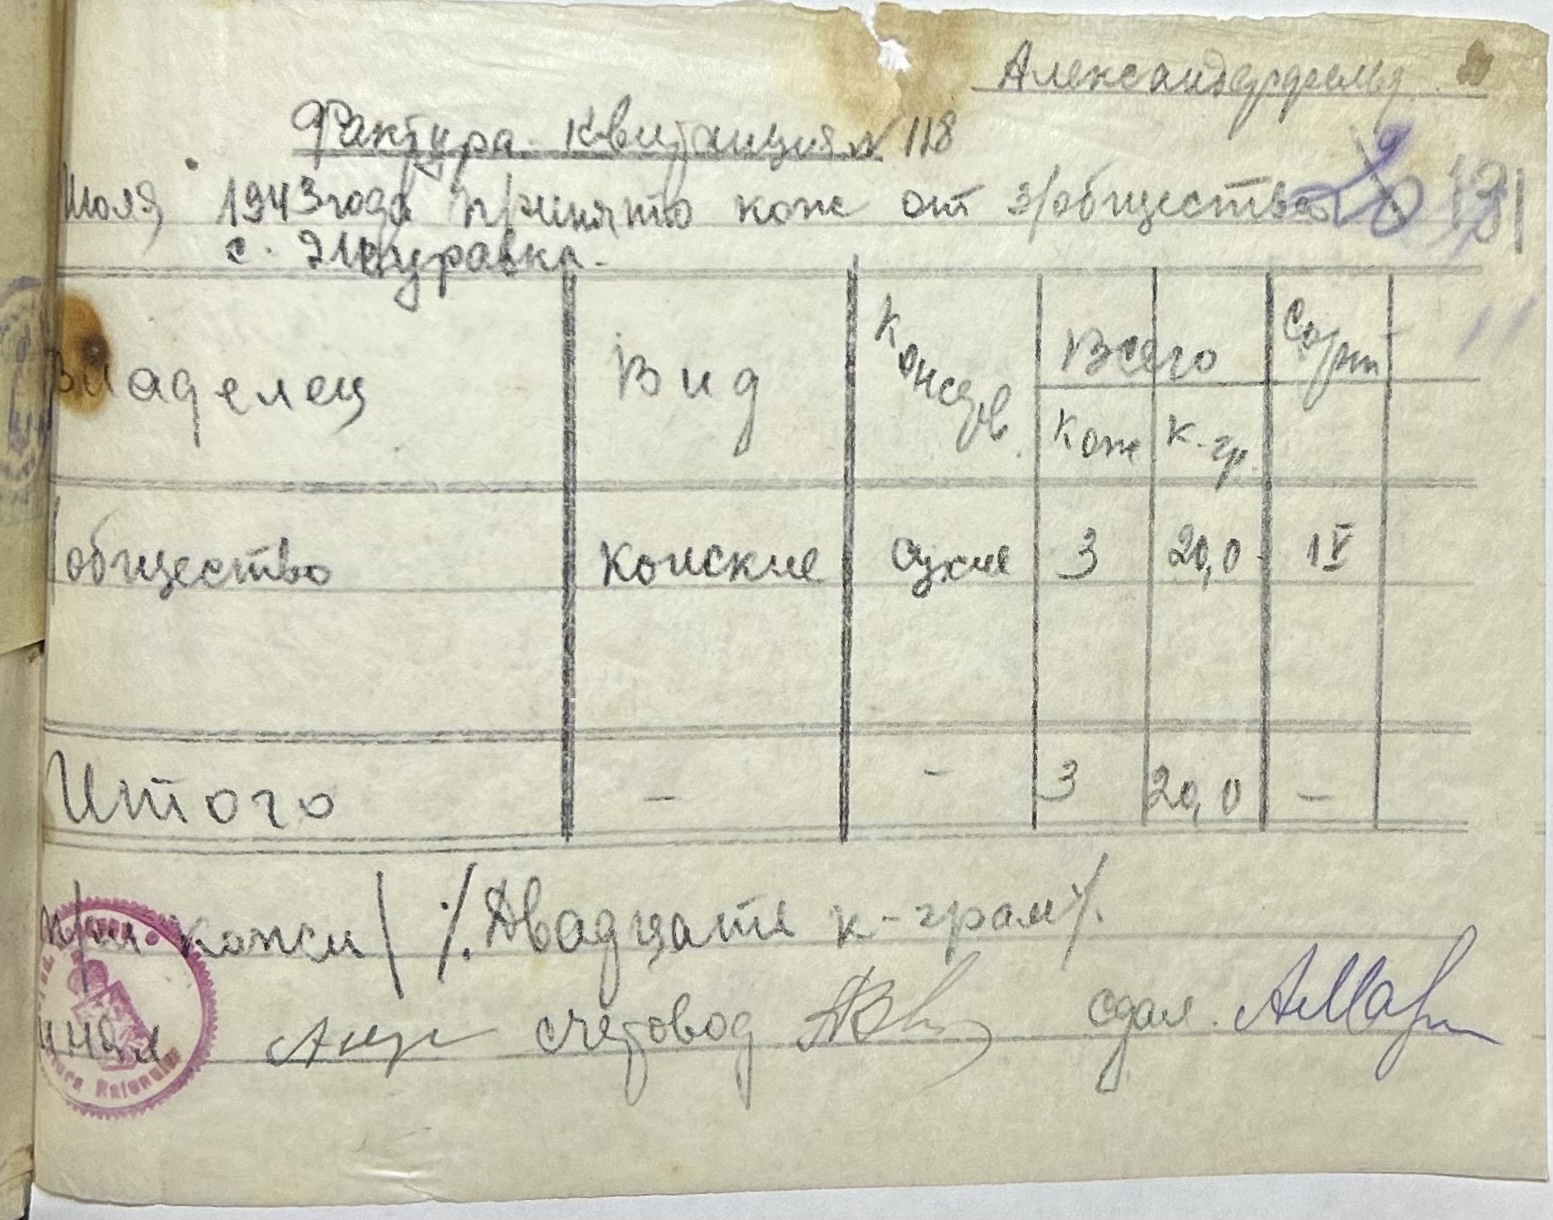 Александерфельд
Фактура-квитанция № 118
Июля 1943 года принято кож от з/общества
с. Журавка.
131
Владелец Вид Консерв. Всего Сорт
Кож К-гр.
общество Конские Сухие 3 20,0 IV
Итого — - 3 20,0 —
кожи / ·/. Двадцать к-грам/.
инял счетовод сдал.